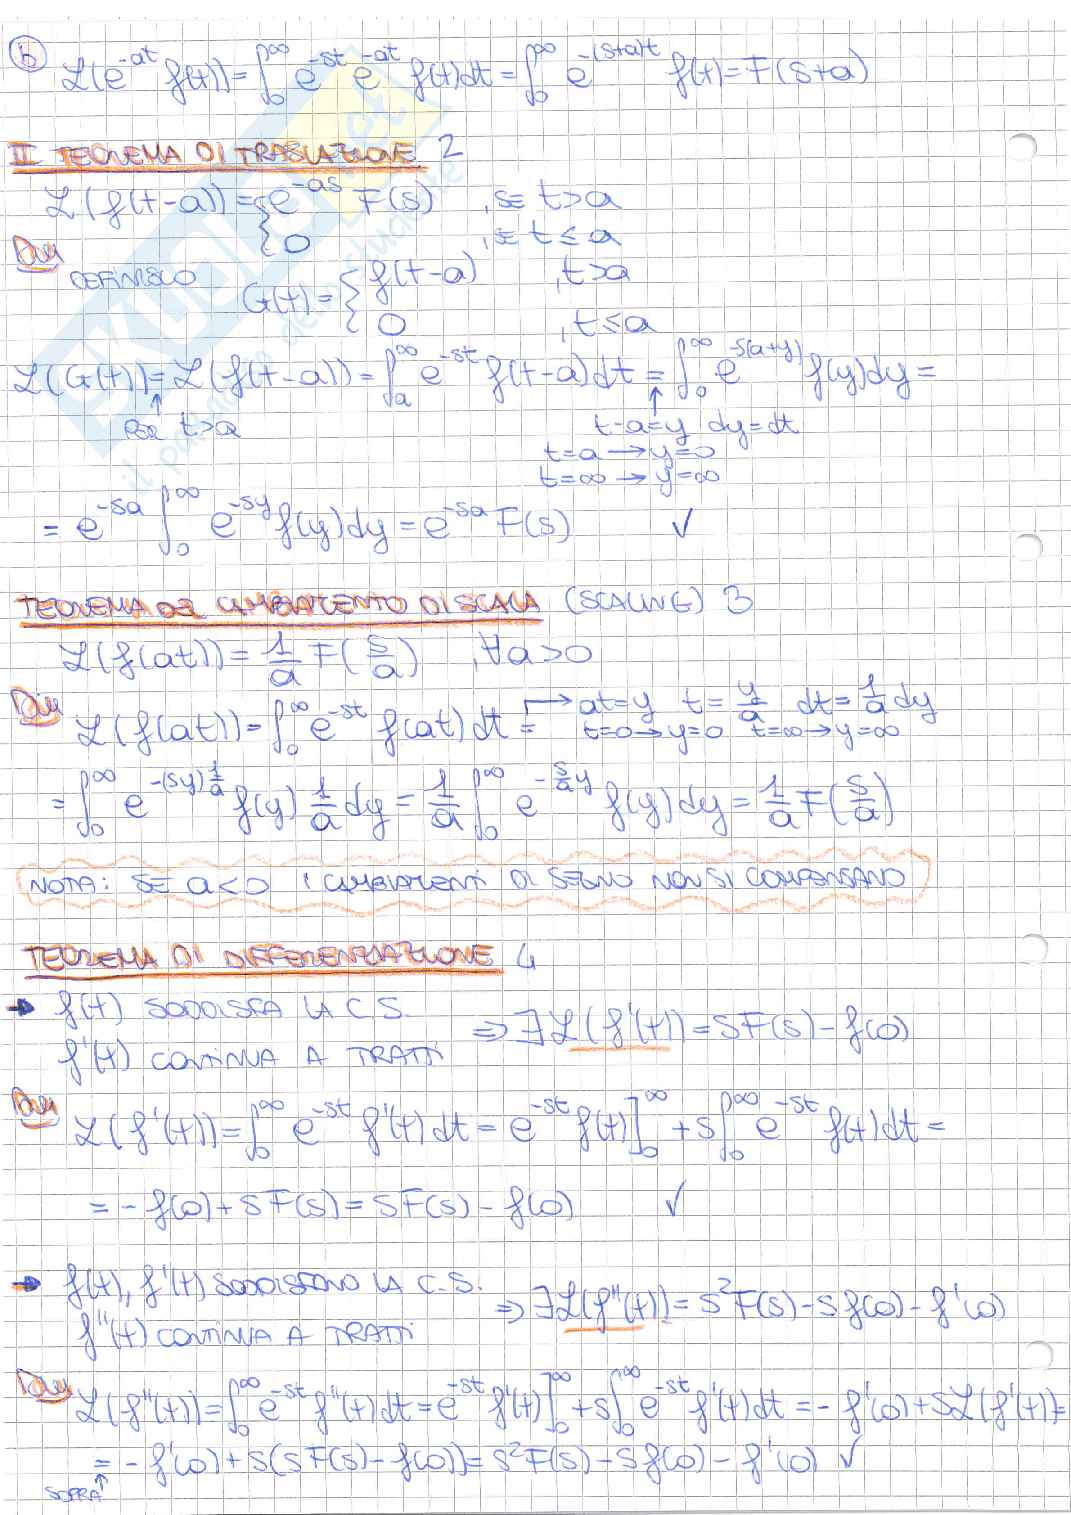 b) ℒ(e^{-at} f(t)) = ∫_0^∞ e^{-st} e^{-at} f(t)dt = ∫_0^∞ e^{-(s+a)t} f(t) = F(s+a)
II TEOREMA DI TRASLAZIONE 2
ℒ(f(t-a)) = { e^{-as} F(s) , se t>a
0 , se t≤a
Dim
DEFINISCO G(t) = { f(t-a) , t>a
0 , t≤a
ℒ(G(t)) = ℒ(f(t-a)) = ∫_a^∞ e^{-st} f(t-a)dt = ∫_0^∞ e^{-s(a+y)} f(y)dy =
↑ PER t>a
↑ t-a=y dy=dt
t=a → y=0
t=∞ → y=∞
= e^{-sa} ∫_0^∞ e^{-sy} f(y)dy = e^{-sa} F(s) ✓
TEOREMA DEL CAMBIAMENTO DI SCALA (SCALING) 3
ℒ(f(at)) = 1/a F(s/a) , ∀a>0
Dim
ℒ(f(at)) = ∫_0^∞ e^{-st} f(at)dt = → at=y t=y/a dt=1/a dy
t=0→y=0 t=∞→y=∞
= ∫_0^∞ e^{-(sy)1/a} f(y) 1/a dy = 1/a ∫_0^∞ e^{-s/a y} f(y)dy = 1/a F(s/a)
NOTA: SE a<0 i CAMBIAMENTI DI SEGNO NON SI COMPENSANO
TEOREMA DI DIFFERENZIAZIONE 4
→ f(t) SODDISFA LA C.S.
f'(t) CONTINUA A TRATTI ⇒ ∃ ℒ(f'(t)) = sF(s) - f(0)
Dim
ℒ(f'(t)) = ∫_0^∞ e^{-st} f'(t)dt = e^{-st} f(t)]_0^∞ + s∫_0^∞ e^{-st} f(t)dt =
= -f(0) + sF(s) = sF(s) - f(0) ✓
→ f(t), f'(t) SODDISFANO LA C.S.
f''(t) CONTINUA A TRATTI ⇒ ∃ ℒ(f''(t)) = s²F(s) - sf(0) - f'(0)
Dim
ℒ(f''(t)) = ∫_0^∞ e^{-st} f''(t)dt = e^{-st} f'(t)]_0^∞ + s∫_0^∞ e^{-st} f'(t)dt = -f'(0) + sℒ(f'(t)) =
= -f'(0) + s(sF(s) - f(0)) = s²F(s) - sf(0) - f'(0) ✓
SOPRA ↑